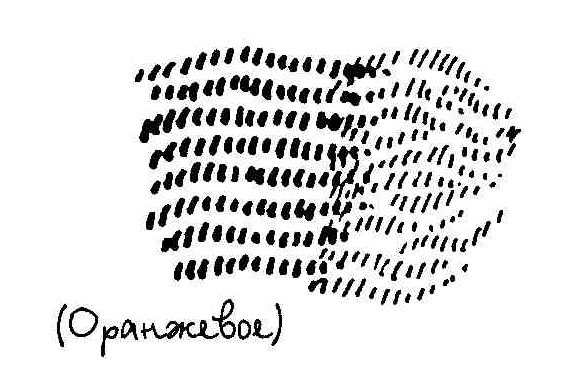 (Оранжевое)